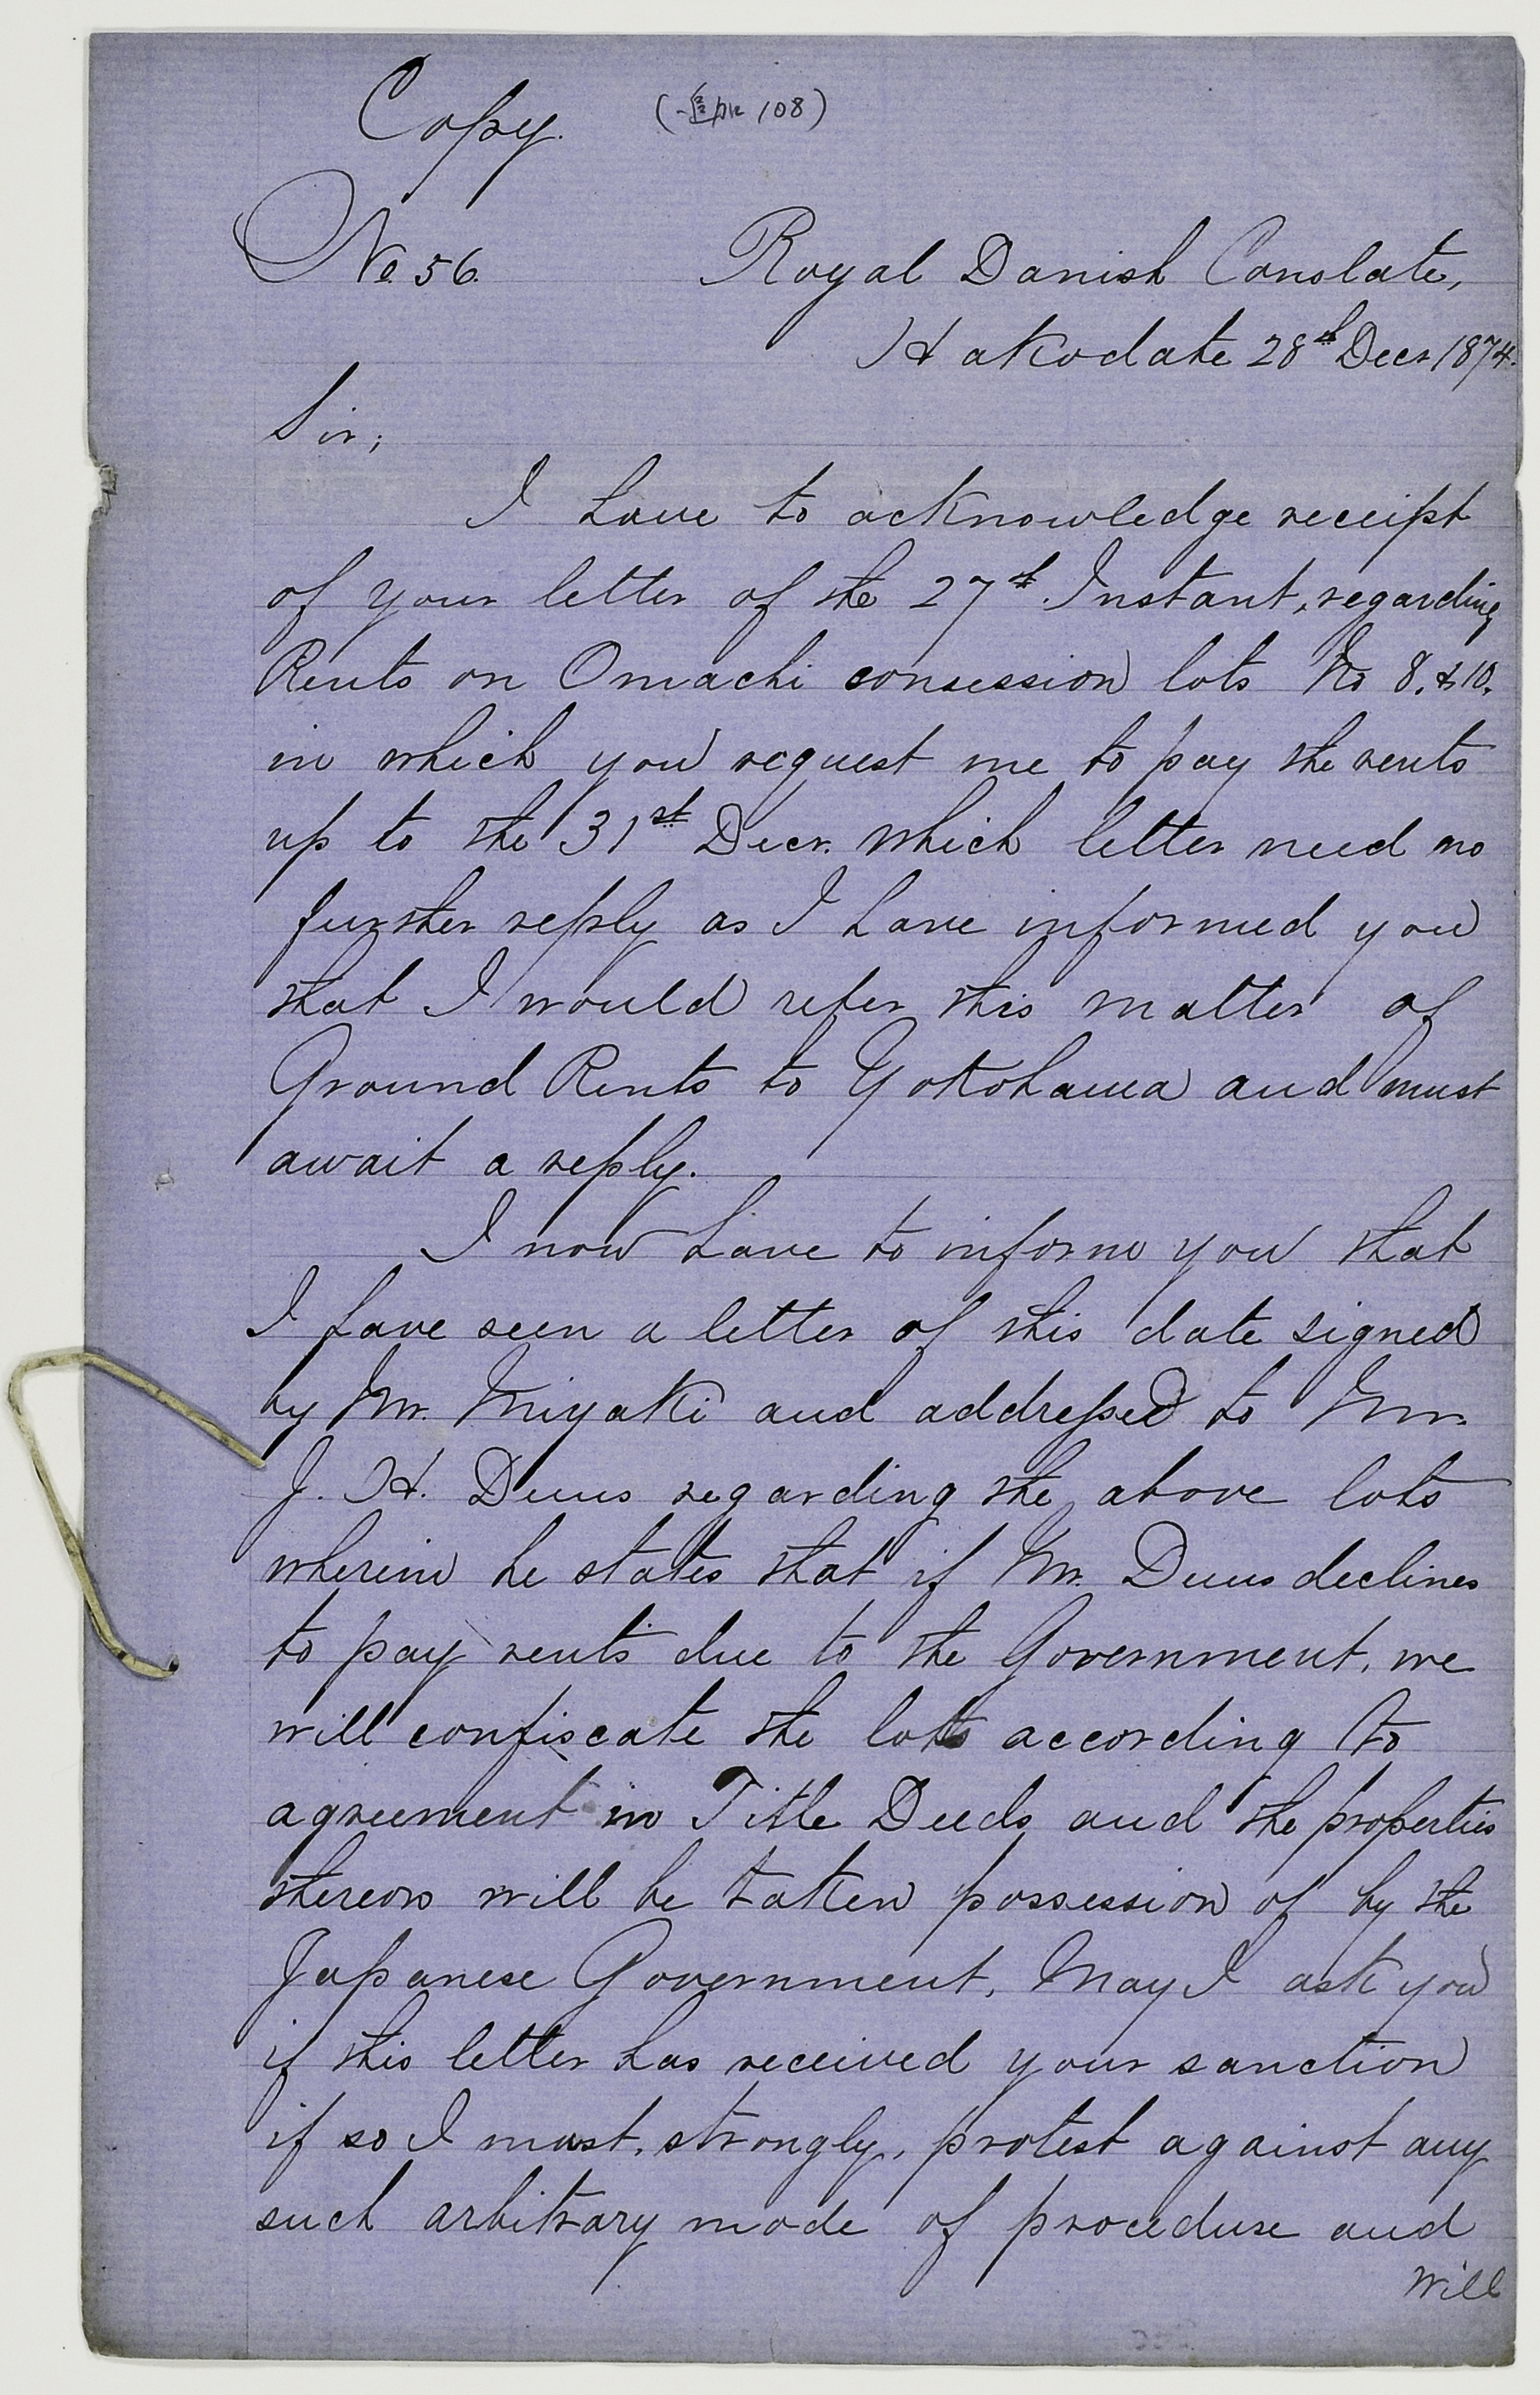 Copy.
108)
No. 56.
Royal Danish Conslate,
Hakodate 28th Decr 1874.
Sir,
I have to acknowledge receipt
of your letter of the 27th Instant, regarding
Rents on Omachi consession lots No 8. & 10.
in which you request me to pay the rents
up to the 31st Decr. which letter need no
further reply as I have informed you
that I would refer this matter of
Ground Rents to Yokohama and must
await a reply.
I now have to inform you that
I have seen a letter of this date signed
by Mr. Miyaki and addressed to Mr.
J. H. Duus regarding the above lots
wherein he states that if Mr. Duus declines
to pay rents due to the Government, we
will confiscate the lots according to
agreement in Title Deeds and the properties
thereon will be taken possession of by the
Japanese Government. May I ask you
if this letter has received your sanction
if so I must, strongly, protest against any
such arbitrary mode of procedure and
will